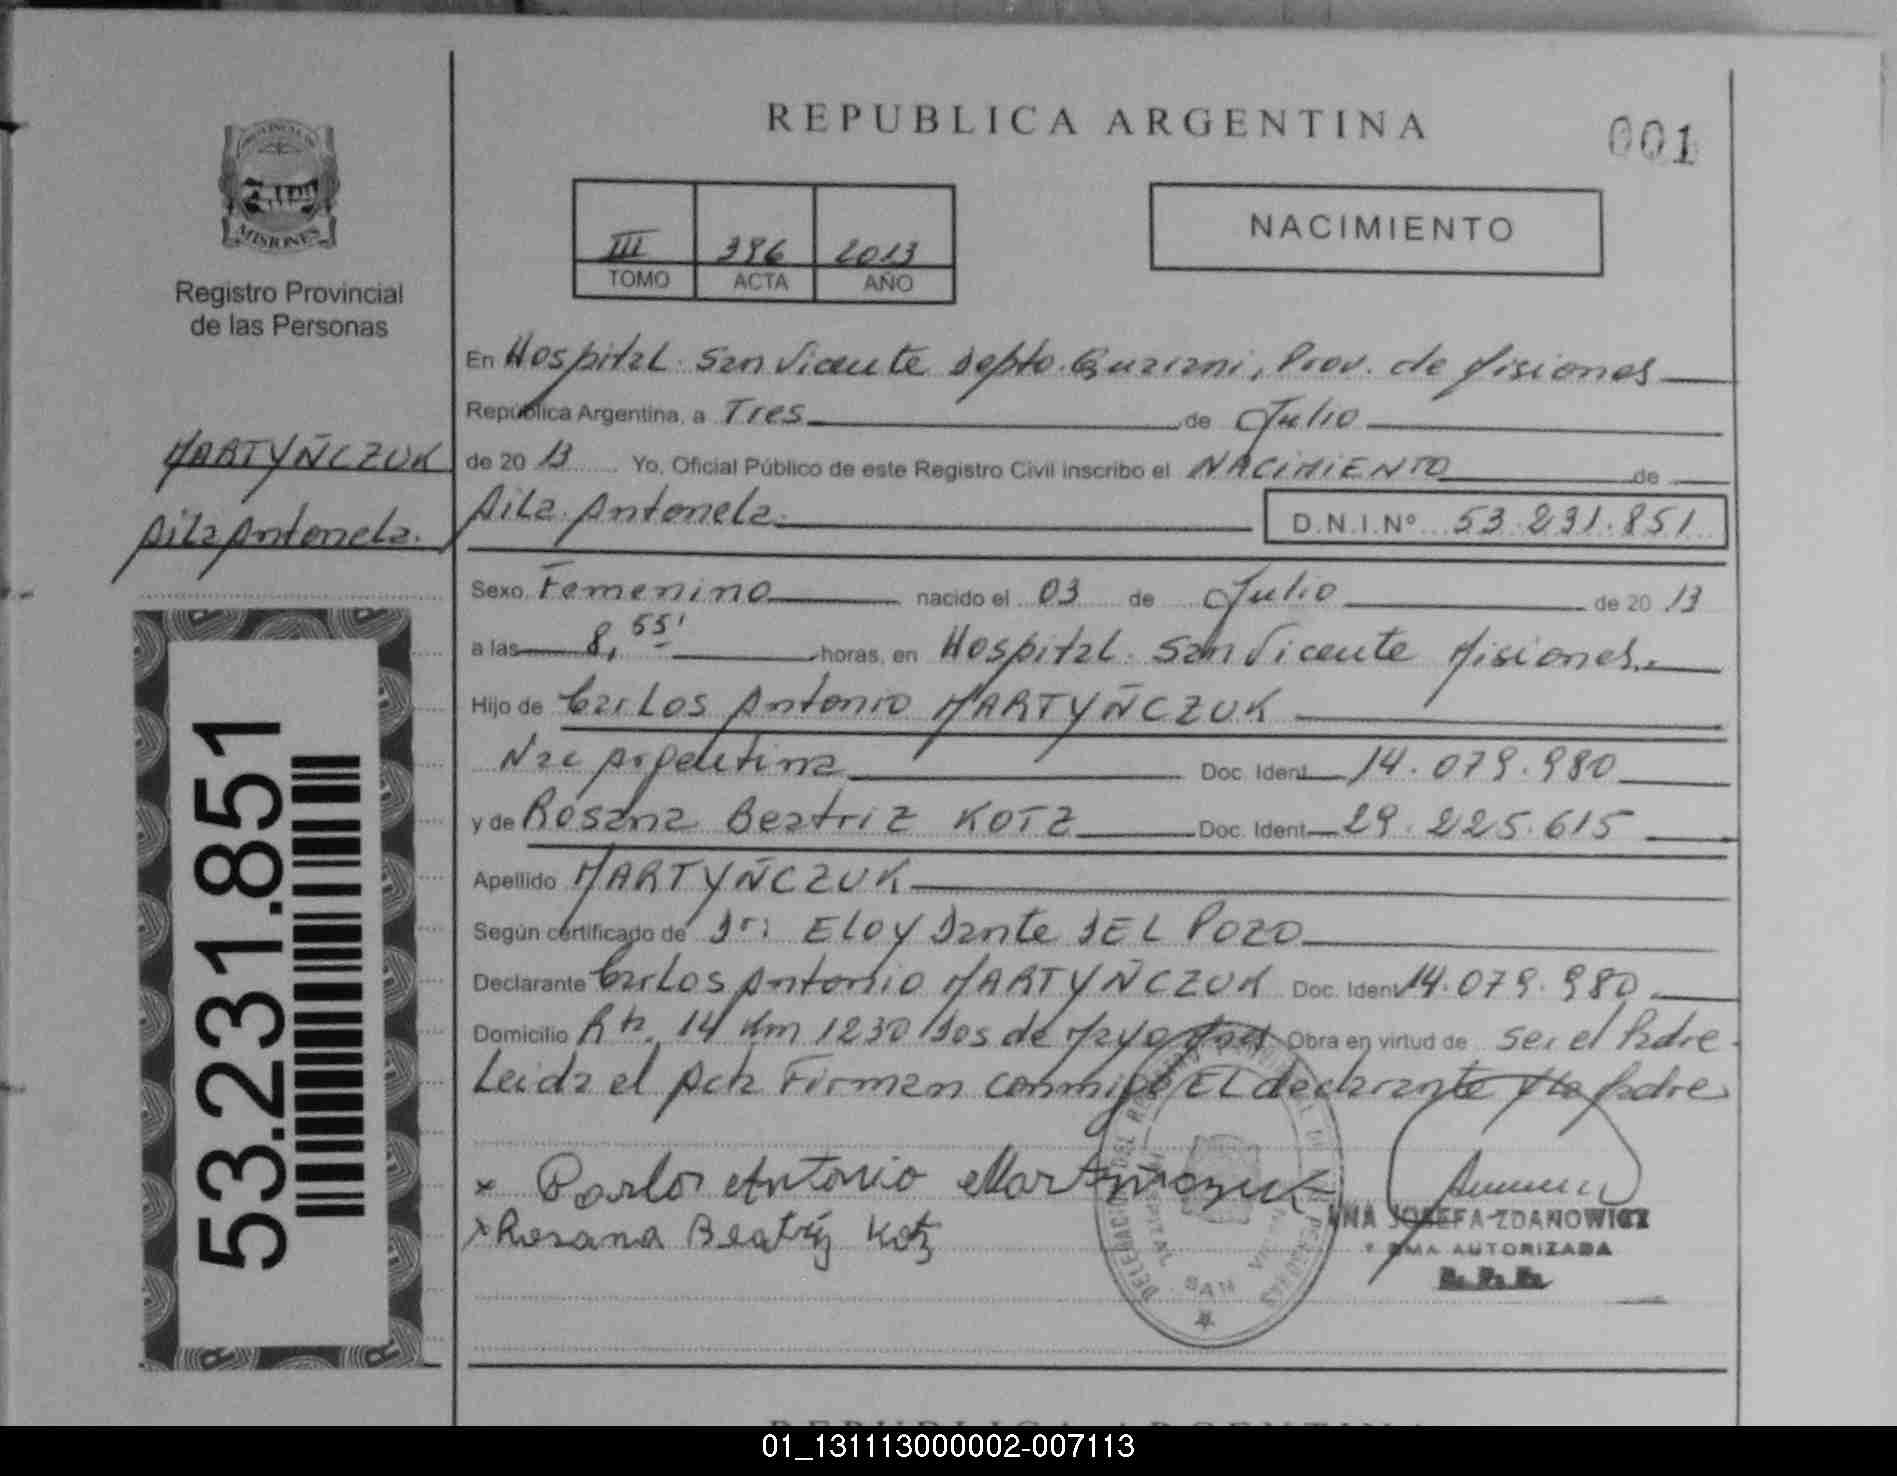 REPUBLICA ARGENTINA
001
PROVINCIA DE
MISIONES
Registro Provincial
de las Personas
III 396 2013
TOMO ACTA AÑO
NACIMIENTO
En Hospital San Vicente Depto. Guarani, Prov. de Misiones
República Argentina, a Tres de Julio
de 20 13 Yo, Oficial Público de este Registro Civil inscribo el NACIMIENTO de
Aila Antonela D.N.I.Nº 53.231.851
MARTYÑCZUK
Aila Antonela.
Sexo Femenino nacido el 03 de Julio de 20 13
a las 8,55' horas, en Hospital San Vicente Misiones.
Hijo de Carlos Antonio MARTYÑCZUK
Nac Argentina Doc. Ident 14.079.980
y de Rosana Beatriz KOTZ Doc. Ident 29.225.615
Apellido MARTYÑCZUK
Según certificado de Dr: ELOY Dante DEL POZO
Declarante Carlos Antonio MARTYÑCZUK Doc. Ident 14.079.980
Domicilio Rta. 14 Km 1230 Dos de Mayo Mnes Obra en virtud de ser el Padre
Leida el Acta Firman conmigo EL declarante y la Padre
x Carlos Antonio Martyñczuk
x Rosana Beatriz Kotz
ANA JOSEFA ZDANOWICZ
FIRMA AUTORIZADA
R. P. P.
SAN
53.231.851
REPUBLICA ARGENTINA
01_131113000002-007113